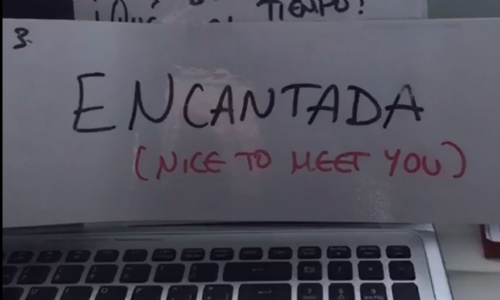 TIEMPO!
3.
ENCANTADA
(NICE TO MEET YOU)